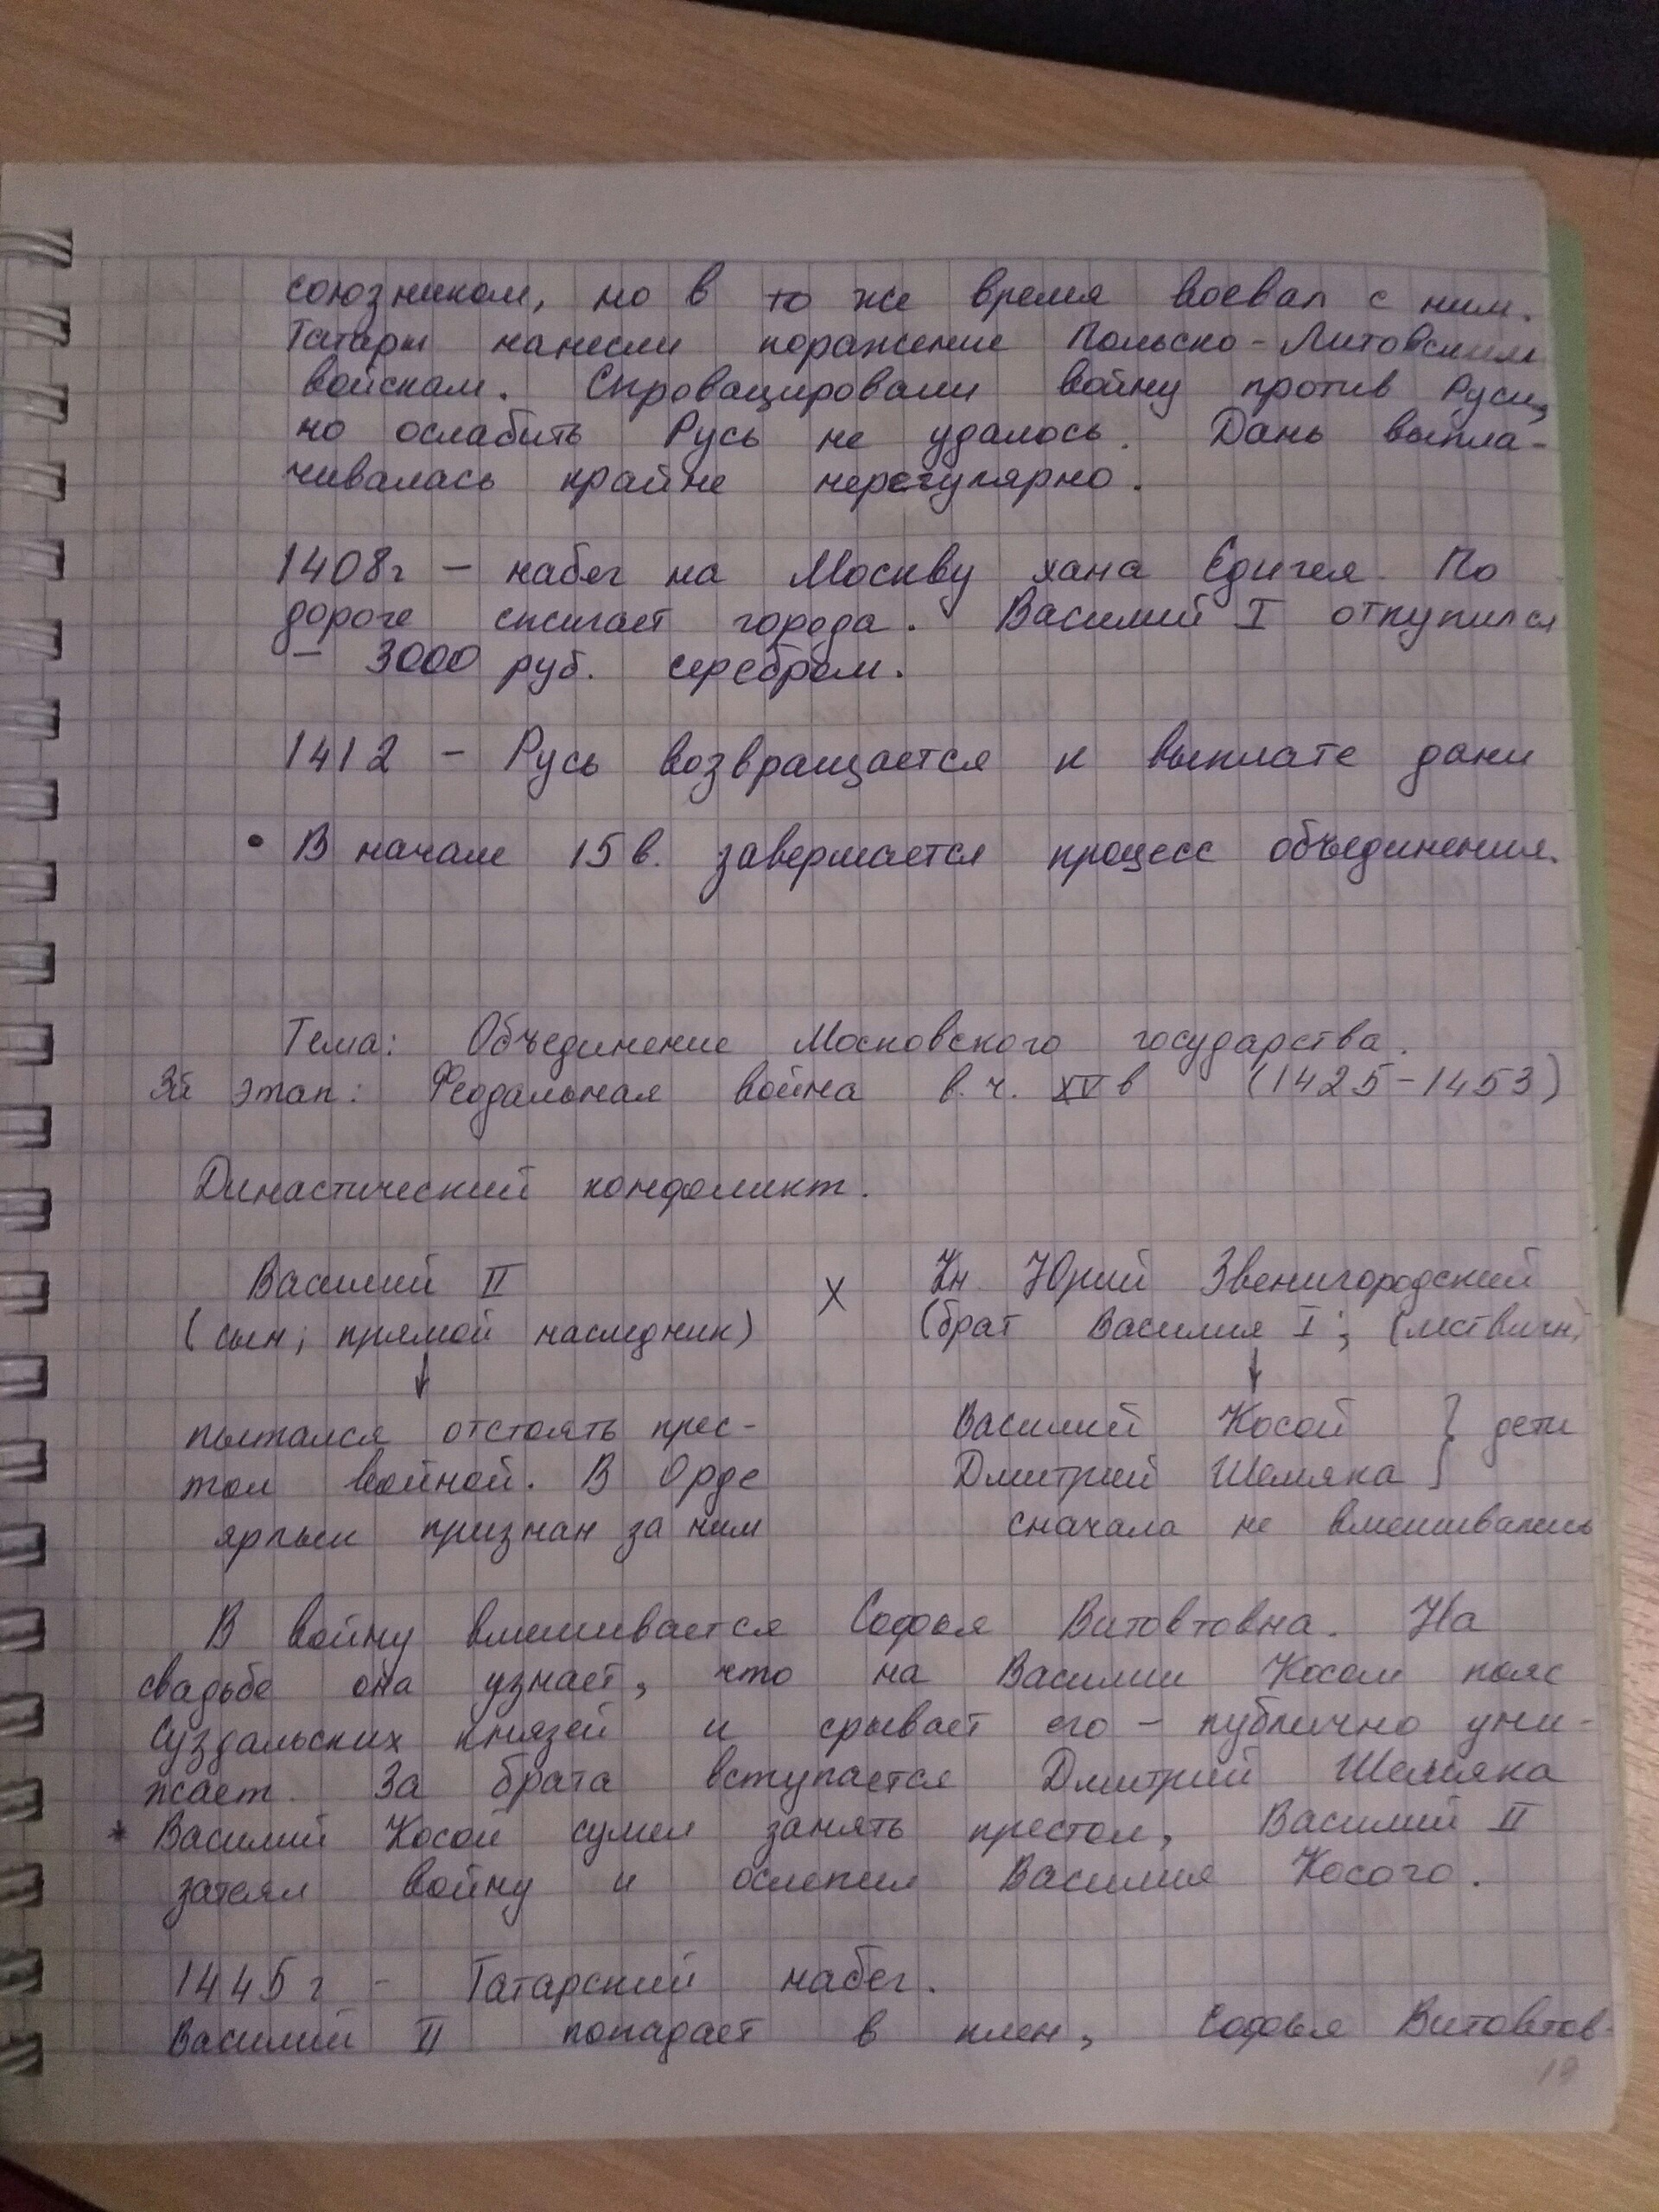 союзником, но в то же время воевал с ним.
Татары нанесли поражение Польско-Литовским
войскам. Спровацировали войну против Руси,
но ослабить Русь не удалось. Дань выпла-
чивалась крайне нерегулярно.
1408г - набег на Москву хана Едигея. По
дороге сжигает города. Василий I откупился
- 3000 руб. серебром.
1412 - Русь возвращается к выплате дани
• В начале 15 в. завершается процесс объединения.
Тема: Объединение Московского государства.
3й этап: Феодальная война в.ч. XV в (1425-1453)
Династический конфликт.
Василий II X Кн. Юрий Звенигородский
(сын; прямой наследник) (брат Василия I; (лествичн)
↓ ↓
пытался отстоять прес- Василий Косой } дети
тол войной. В Орде Дмитрий Шемяка
ярлык признан за ним сначала не вмешивались
В войну вмешивается Софья Витовтовна. На
свадьбе она узнает, что на Василии Косом пояс
Суздальских князей и срывает его - публично уни-
жает. За брата вступается Дмитрий Шемяка
* Василий Косой сумел занять престол, Василий II
затеял войну и ослепил Василия Косого.
1445 г - Татарский набег.
Василий II попадает в плен, Софья Витовтов-
19